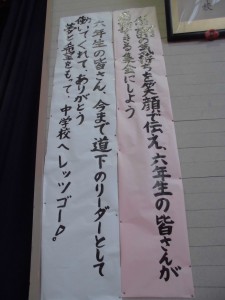 の気持ちを笑顔で伝え、六年生の皆さんが
できる集会にしよう
六年生の皆さん、今まで道下のリーダーとして
働いてくれて、ありがとう
夢と希望をもって、中学校へレッツゴー!